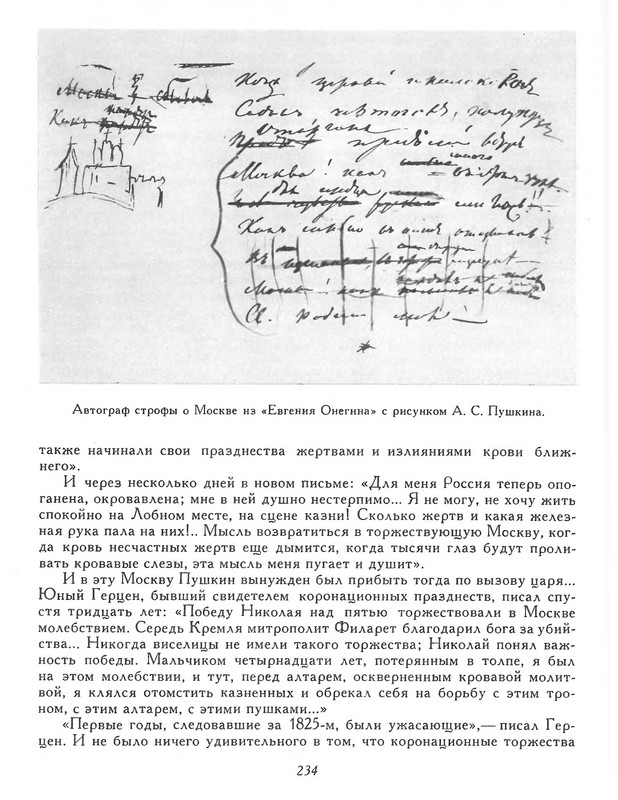 Москва
Какъ
Какъ
Москва!
Москва
Автограф строфы о Москве из «Евгения Онегина» с рисунком А. С. Пушкина.
также начинали свои празднества жертвами и излияниями крови ближ-
него».
И через несколько дней в новом письме: «Для меня Россия теперь опо-
ганена, окровавлена; мне в ней душно нестерпимо... Я не могу, не хочу жить
спокойно на Лобном месте, на сцене казни! Сколько жертв и какая желез-
ная рука пала на них!.. Мысль возвратиться в торжествующую Москву, ког-
да кровь несчастных жертв еще дымится, когда тысячи глаз будут проли-
вать кровавые слезы, эта мысль меня пугает и душит».
И в эту Москву Пушкин вынужден был прибыть тогда по вызову царя...
Юный Герцен, бывший свидетелем коронационных празднеств, писал спу-
стя тридцать лет: «Победу Николая над пятью торжествовали в Москве
молебствием. Середь Кремля митрополит Филарет благодарил бога за убий-
ства... Никогда виселицы не имели такого торжества; Николай понял важ-
ность победы. Мальчиком четырнадцати лет, потерянным в толпе, я был
на этом молебствии, и тут, перед алтарем, оскверненным кровавой молит-
вой, я клялся отомстить казненных и обрекал себя на борьбу с этим тро-
ном, с этим алтарем, с этими пушками...»
«Первые годы, следовавшие за 1825-м, были ужасающие»,— писал Гер-
цен. И не было ничего удивительного в том, что коронационные торжества
234